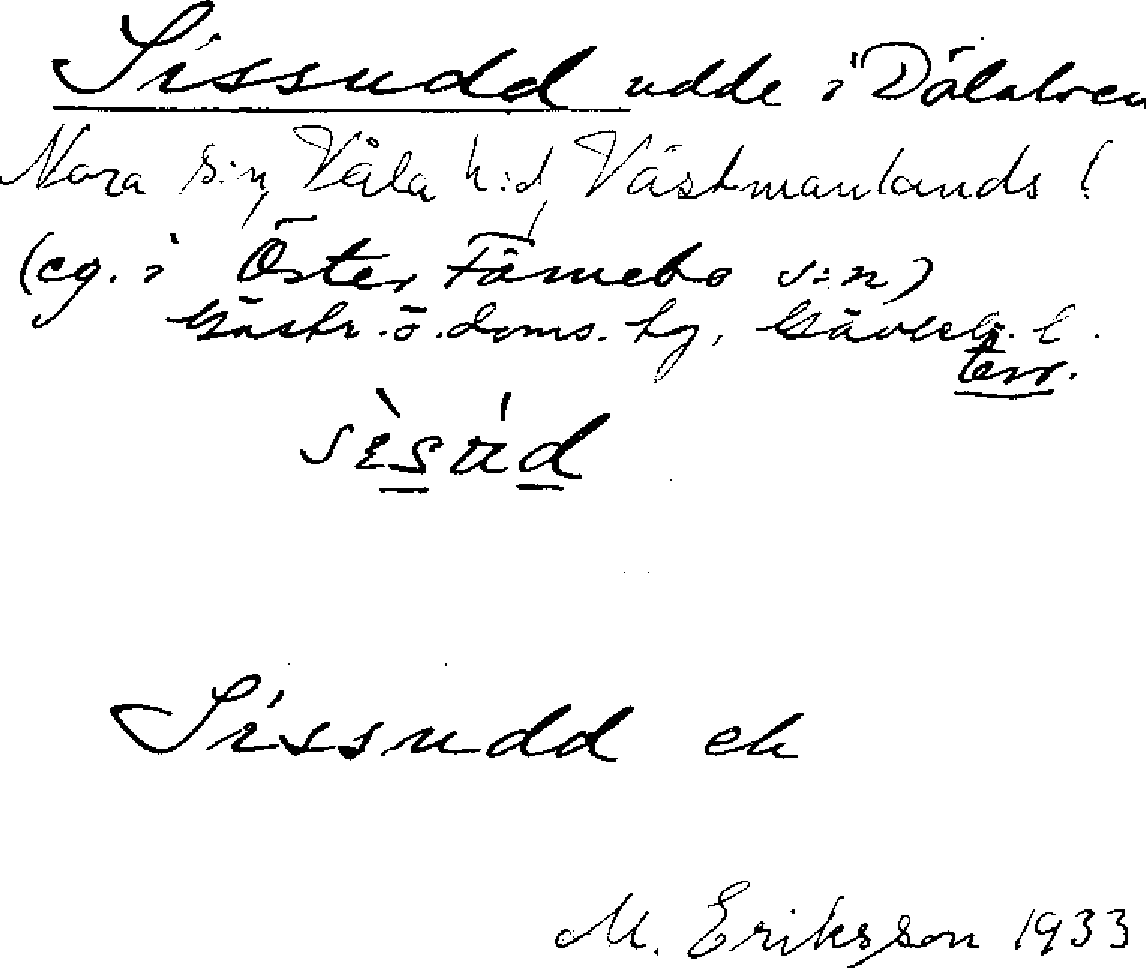 Sissudd udde i Dalälven
Nora s:n, Våla h:d, Västmanlands l
(eg. i Öster Färnebo s:n)
Gästr. ö. doms. tg, Gävleb. l.
terr.
sìsúd
Sissudd ek
M. Eriksson 1933